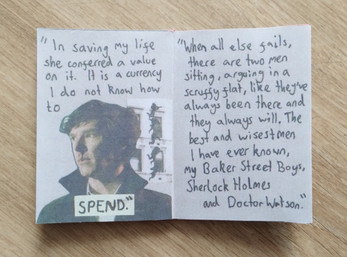 "In saving my life
she conferred a value
on it. It is a currency
I do not know how
to
SPEND."
"When all else fails,
there are two men
sitting, arguing in a
scruffy flat, like they've
always been there and
they always will. The
best and wisest men
I have ever known,
my Baker Street Boys,
Sherlock Holmes
and Doctor Watson."